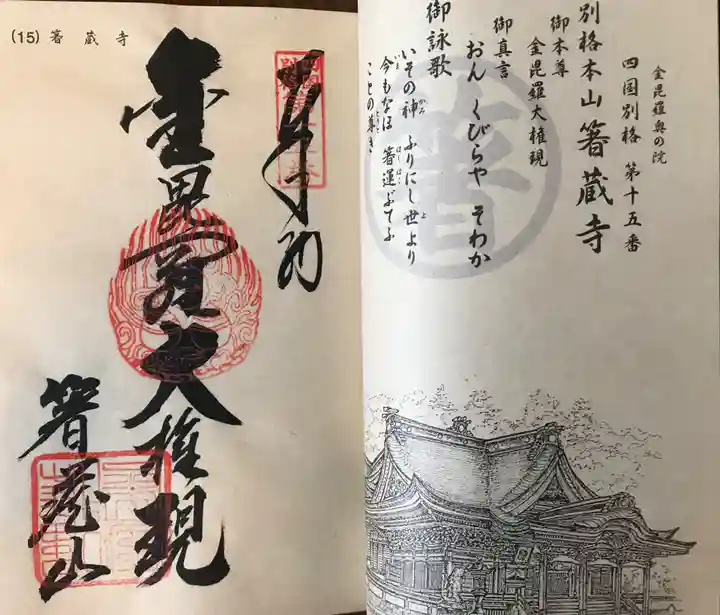 (15) 箸蔵寺
奉拝
金毘羅大権現
箸蔵山
金毘羅奥の院
四国別格 第十五番
別格本山 箸蔵寺
御本尊
金毘羅大権現
御真言
おん くびらや そわか
御詠歌
いその神 ふりにし世より
今もなほ 箸運ぶてふ
ことの尊き
箸